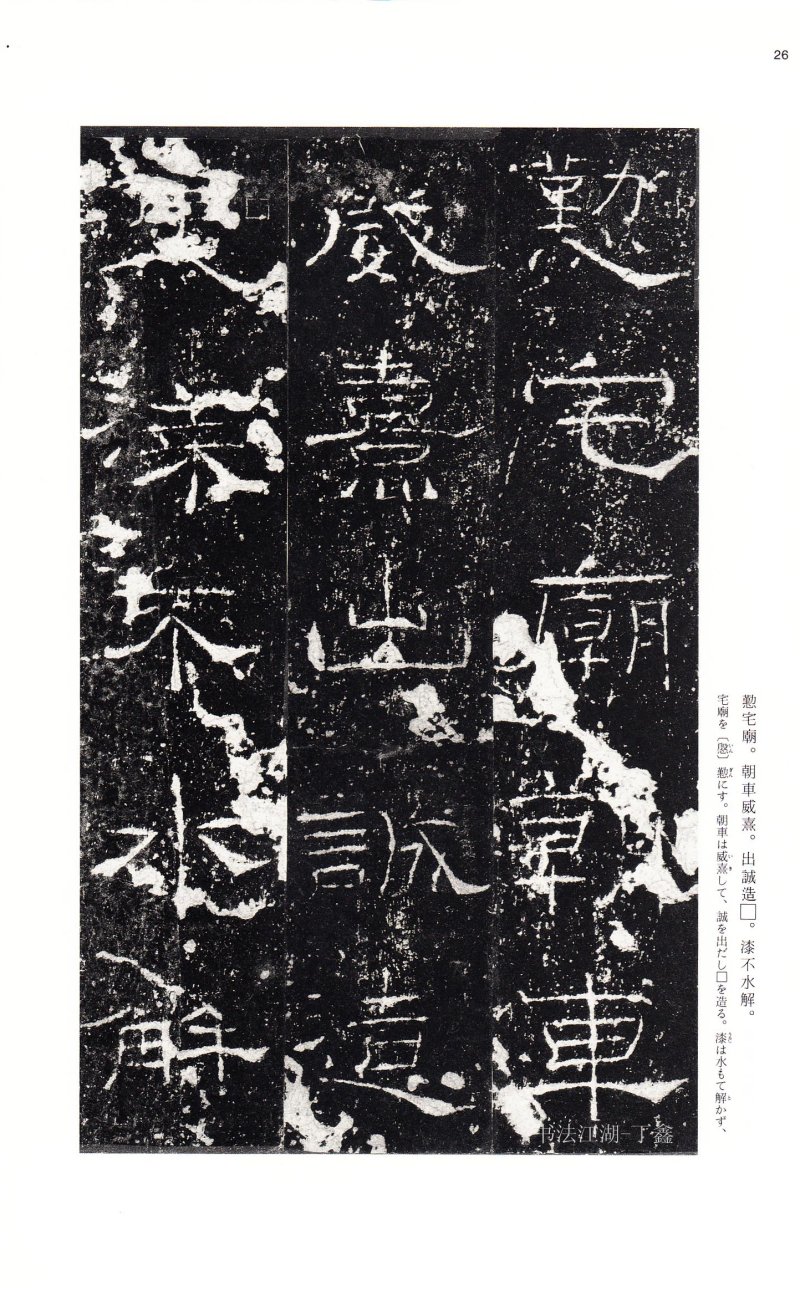 26
懃宅廟朝車
威熹出誠造
□漆不水解
懃宅廟。朝車威熹。出誠造□。漆不水解。
宅廟を〔慇〕懃にす。朝車は威熹して、誠を出だし□を造る。漆は水もて解かず、
书法江湖-丁鑫